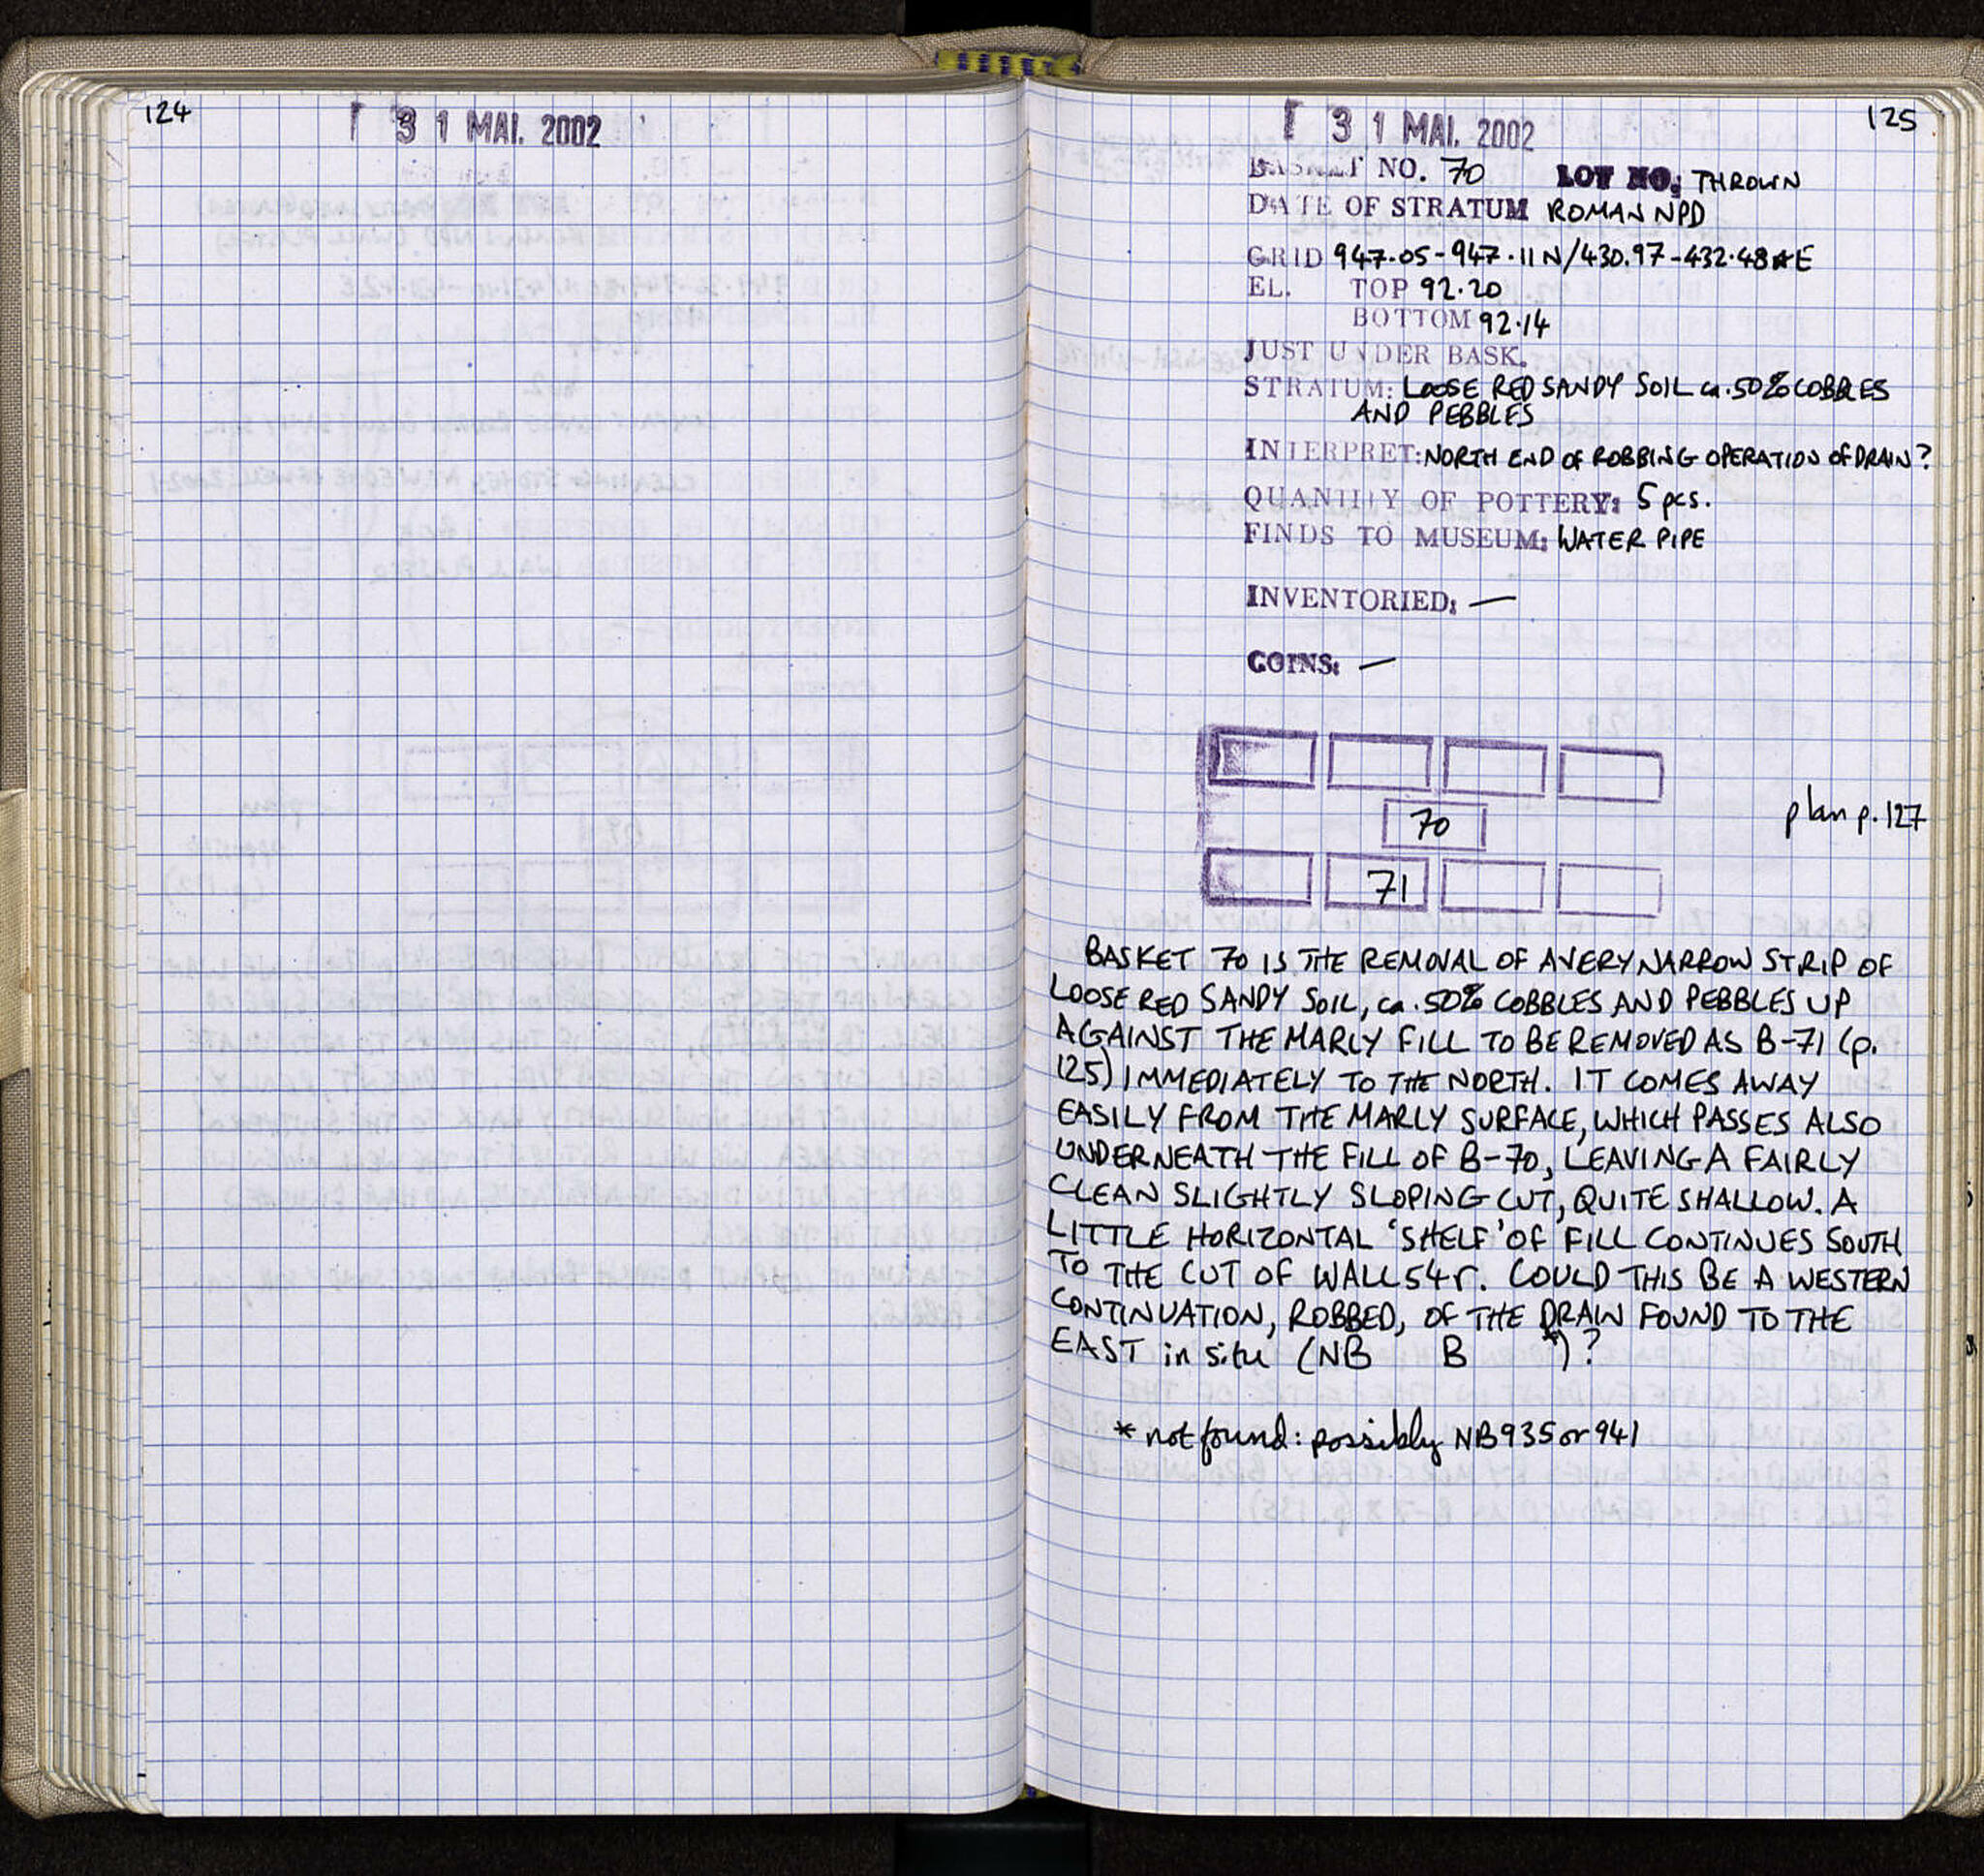 124
31 MAI. 2002
31 MAI. 2002
125
BASKET NO. 70 LOT NO: THROWN
DATE OF STRATUM ROMAN NPD
GRID 947.05-947.11N/430.97-432.48 E
EL. TOP 92.20
BOTTOM 92.14
JUST UNDER BASK.
STRATUM: LOOSE RED SANDY SOIL ca. 50% COBBLES
AND PEBBLES
INTERPRET: NORTH END OF ROBBING OPERATION OF DRAIN?
QUANTITY OF POTTERY: 5 pcs.
FINDS TO MUSEUM: WATER PIPE
INVENTORIED: —
COINS: —
70
plan p. 127
71
BASKET 70 IS THE REMOVAL OF A VERY NARROW STRIP OF
LOOSE RED SANDY SOIL, ca. 50% COBBLES AND PEBBLES UP
AGAINST THE MARLY FILL TO BE REMOVED AS B-71 (p.
125) IMMEDIATELY TO THE NORTH. IT COMES AWAY
EASILY FROM THE MARLY SURFACE, WHICH PASSES ALSO
UNDERNEATH THE FILL OF B-70, LEAVING A FAIRLY
CLEAN SLIGHTLY SLOPING CUT, QUITE SHALLOW. A
LITTLE HORIZONTAL 'SHELF' OF FILL CONTINUES SOUTH
TO THE CUT OF WALL 54r. COULD THIS BE A WESTERN
CONTINUATION, ROBBED, OF THE DRAIN FOUND TO THE
EAST in situ (NB B *)?
* not found: possibly NB935 or 941